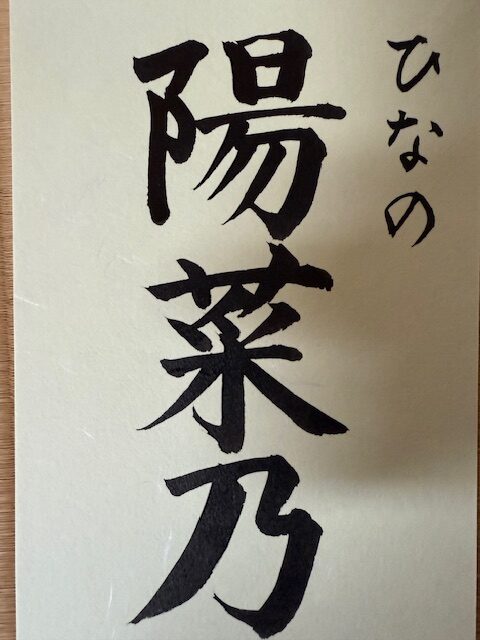 ひなの
陽菜乃